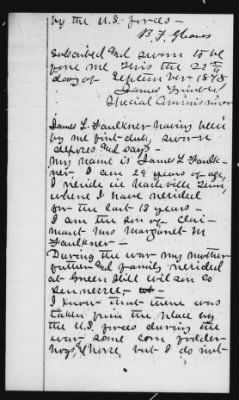 by the U.S. forces -
B. F. Gloaves
Subscribed and sworn to be
fore me this the 22nd
day of September 1873
James
Special Commissioner
James L. Faulkner having been
by me first duly sworn
deposes and says -
my name is James L. Faulk-
ner, I am 29 years of age,
I reside in Nashville Tenn,
where I have resided
for the last 13 years -
I am the son of Clai-
mant Mrs Margaret M
Faulkner -
During the war my mother
father and family resided
at Green Hill Wilson Co
Tennessee,
I know that there was
taken from the place by
the U.S. forces during the
war some corn fodder
hogs & horse, but I do not